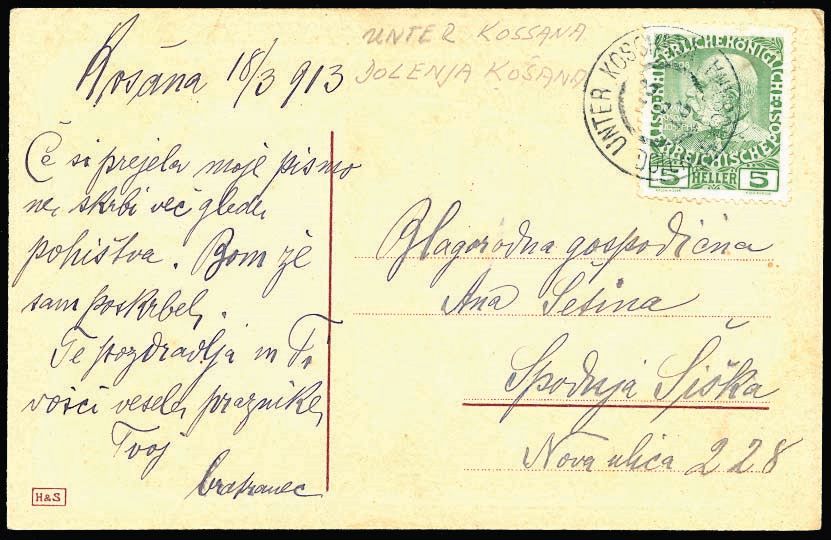 Košana 18/3 913
UNTER KOSSANA
DOLENJA KOŠANA
UNTER KOSS
KAISERLICHE KÖNIGLICHE
ÖSTERREICHISCHE POST
5 HELLER 5
Če si prejela moje pismo
ne skrbi več glede
pohištva. Bom že
sam poskrbel.
Te pozdravlja in Ti
vošči vesele praznike
Tvoj
bratranec
Blagorodna gospodična
Ana Šešina
Spodnja Šiška
Nova ulica 228
H&S